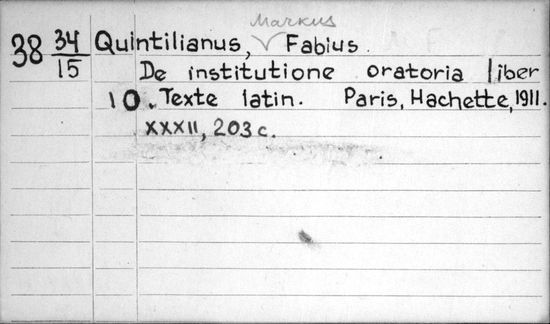 Markus
38 34/15 Quintilianus, Fabius.
De institutione oratoria liber
10. Texte latin. Paris, Hachette, 1911.
XXXII, 203 c.